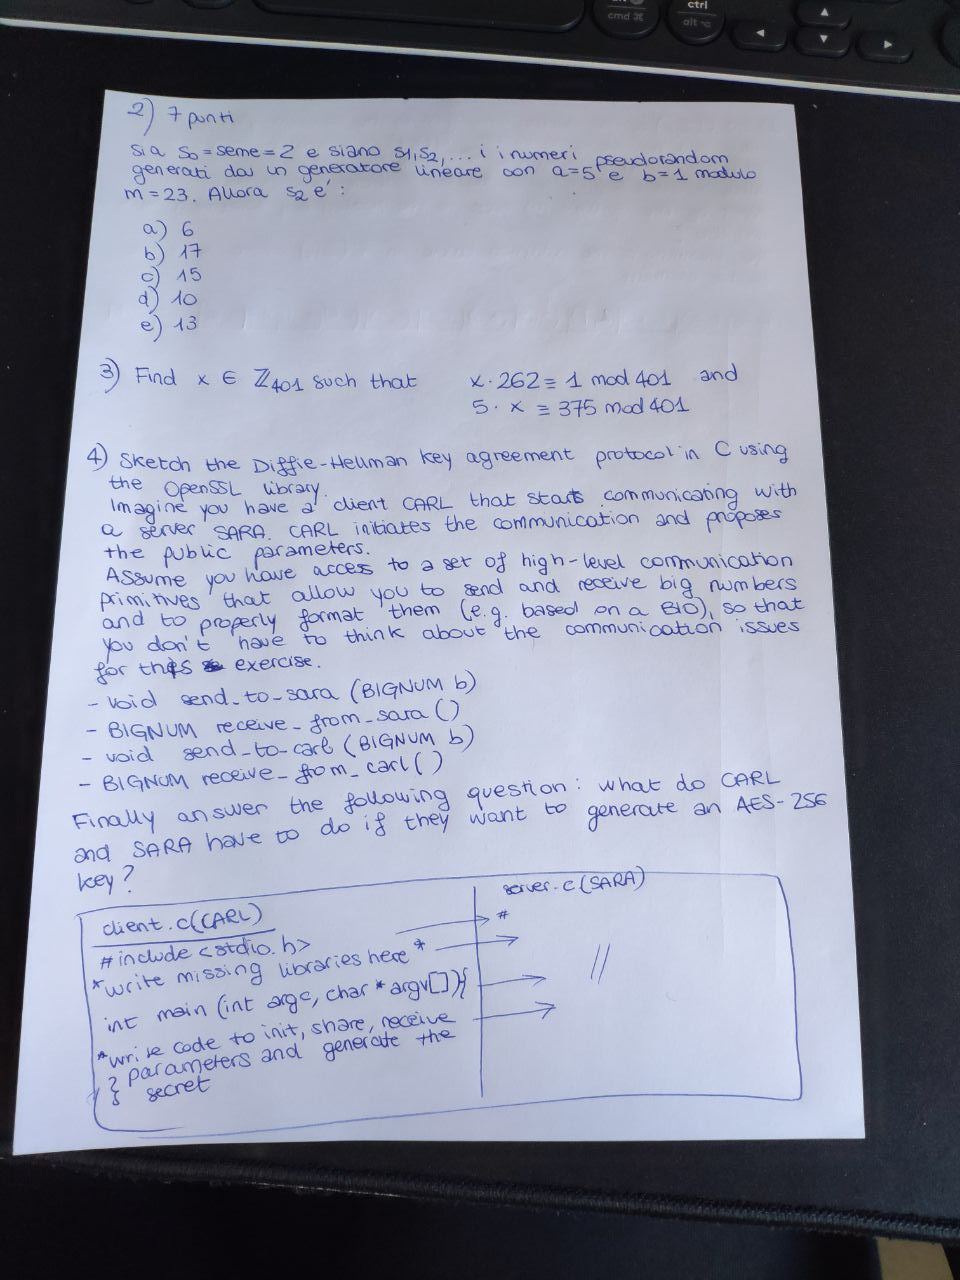 ctrl
cmd ⌘
alt ⌥
2) 7 punti
sia s0 = seme = 2 e siano s1, s2, ... i inumeri pseudorandom
generati da un generatore lineare con a=5 e b=1 modulo
m=23. Allora s2 e':
a) 6
b) 17
c) 15
d) 10
e) 13
3) Find x ∈ ℤ401 such that x·262 ≡ 1 mod 401 and
5·x ≡ 375 mod 401
4) Sketch the Diffie-Hellman key agreement protocol in C using
the OpenSSL library.
Imagine you have a client CARL that starts communicating with
a server SARA. CARL initiates the communication and proposes
the public parameters.
Assume you have access to a set of high-level communication
primitives that allow you to send and receive big numbers
and to properly format them (e.g. based on a BIO), so that
you don't have to think about the communication issues
for this exercise.
- void send_to_sara (BIGNUM b)
- BIGNUM receive_from_sara ()
- void send_to_carl (BIGNUM b)
- BIGNUM receive_from_carl ()
Finally answer the following question: what do CARL
and SARA have to do if they want to generate an AES-256
key?
client.c (CARL)
#include <stdio.h>
*write missing libraries here*
int main (int argc, char *argv[]){
*write code to init, share, receive
parameters and generate the
} secret
server.c (SARA)
#
//